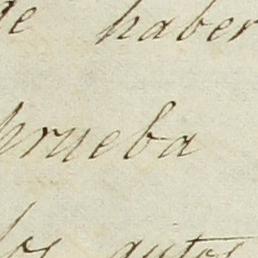 de haber
prueba
los autos